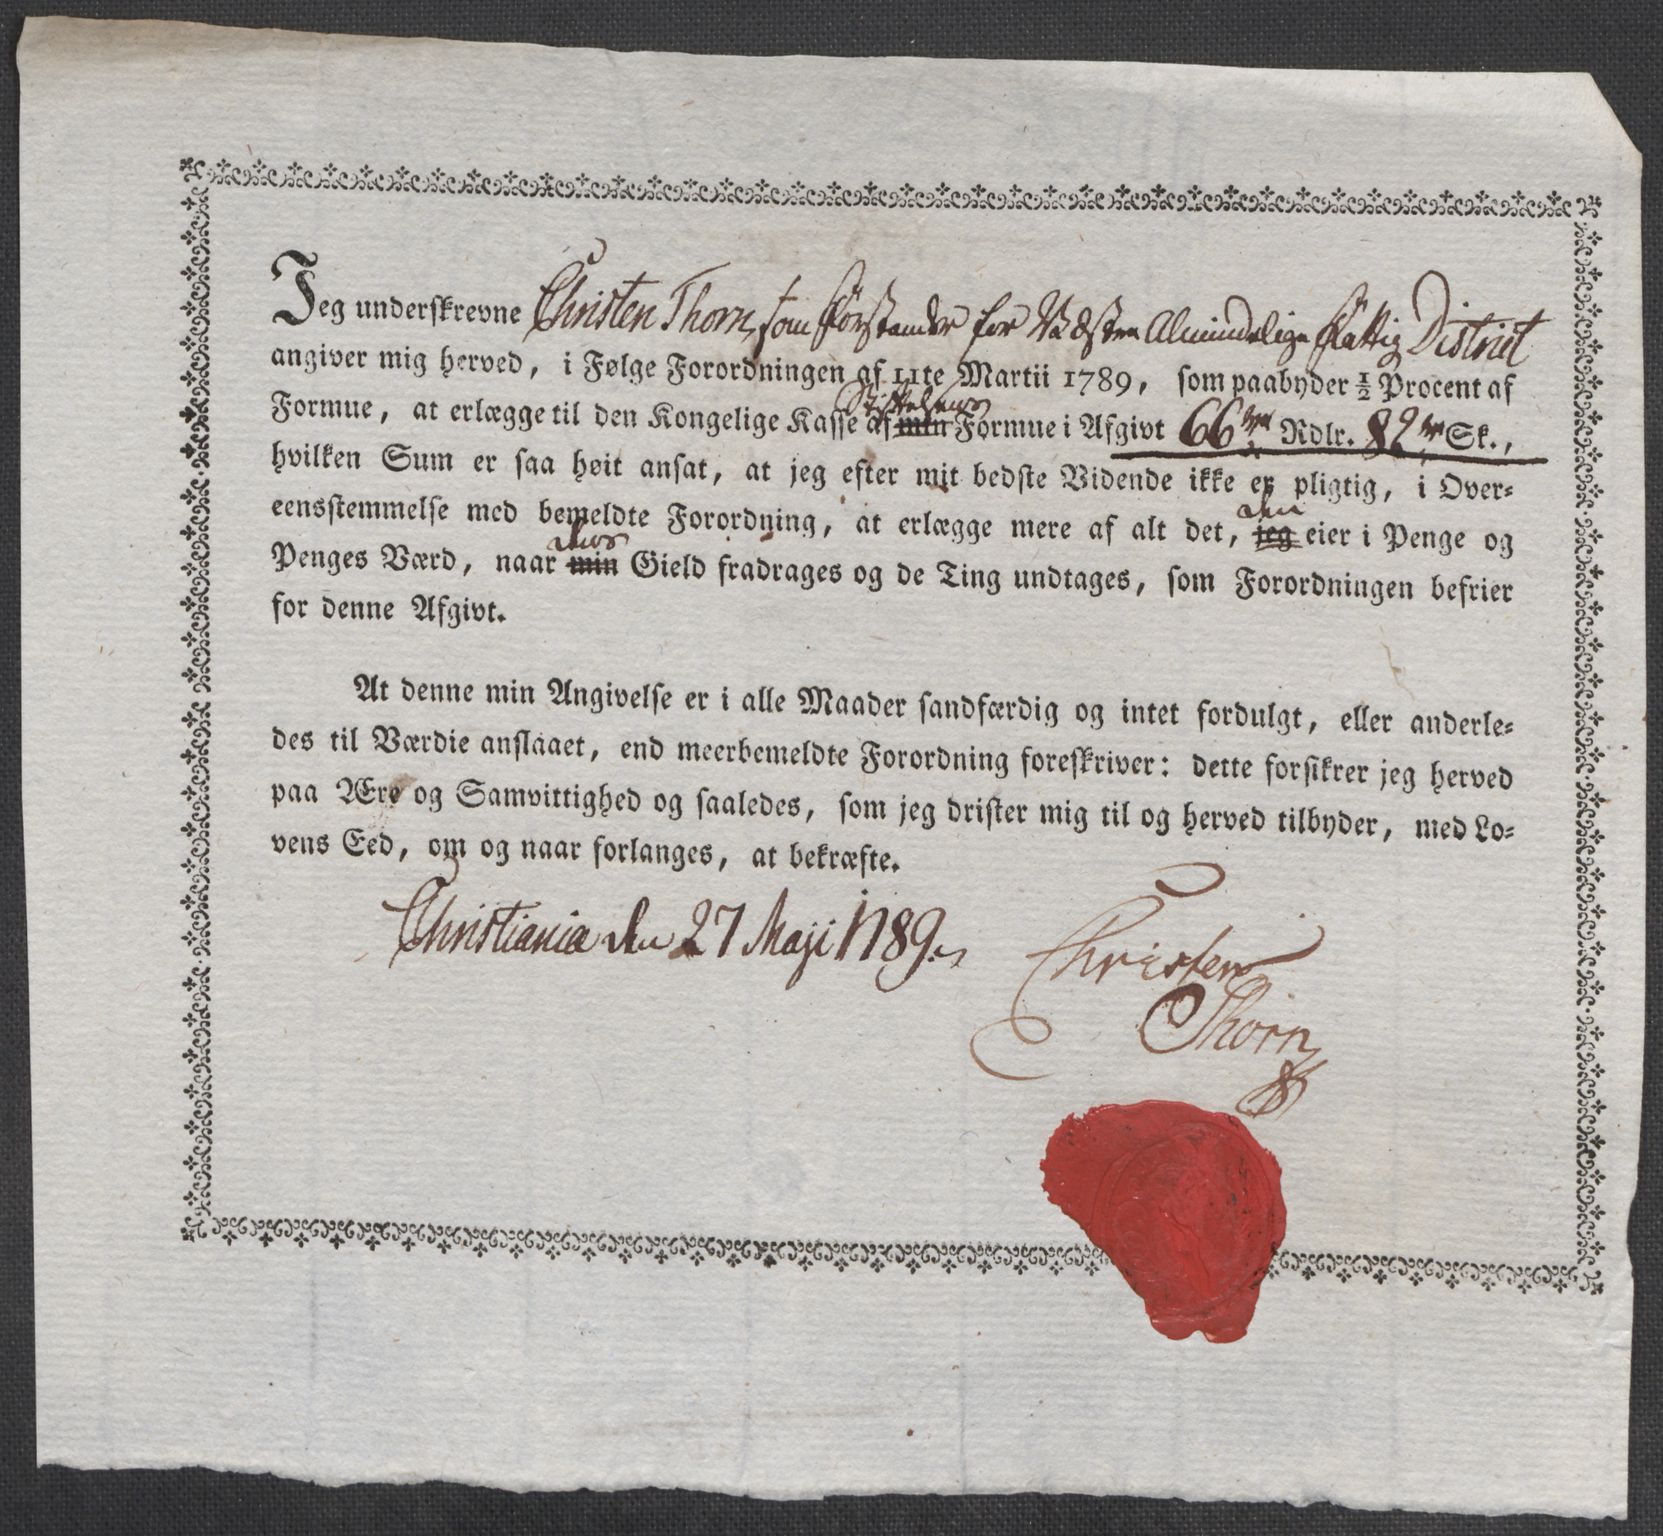 Jeg underskrevne Christen Thorn, som Forstander for Væstre Almindelige Fattig District
angiver mig herved, i Følge Forordningen af 11te Martii 1789, som paabyder ½ Procent af
Stiftelsens
Formue, at erlægge til den Kongelige Kasse af min Formue i Afgivt 66 Rdlr. 82 Sk.,
hvilken Sum er saa høit ansat, at jeg efter mit bedste Vidende ikke er pligtig, i Over-
den
eensstemmelse med bemeldte Forordning, at erlægge mere af alt det, jeg eier i Penge og
dens
Penges Værd, naar min Gield fradrages og de Ting undtages, som Forordningen befrier
for denne Afgivt.
At denne min Angivelse er i alle Maader sandfærdig og intet fordulgt, eller anderle-
des til Værdie anslaaet, end meerbemeldte Forordning foreskriver: dette forsikrer jeg herved
paa Ære og Samvittighed og saaledes, som jeg drister mig til og herved tilbyder, med Lo-
vens Eed, om og naar forlanges, at bekræfte.
Christiania den 27 Maji 1789.
Christen
Thorn